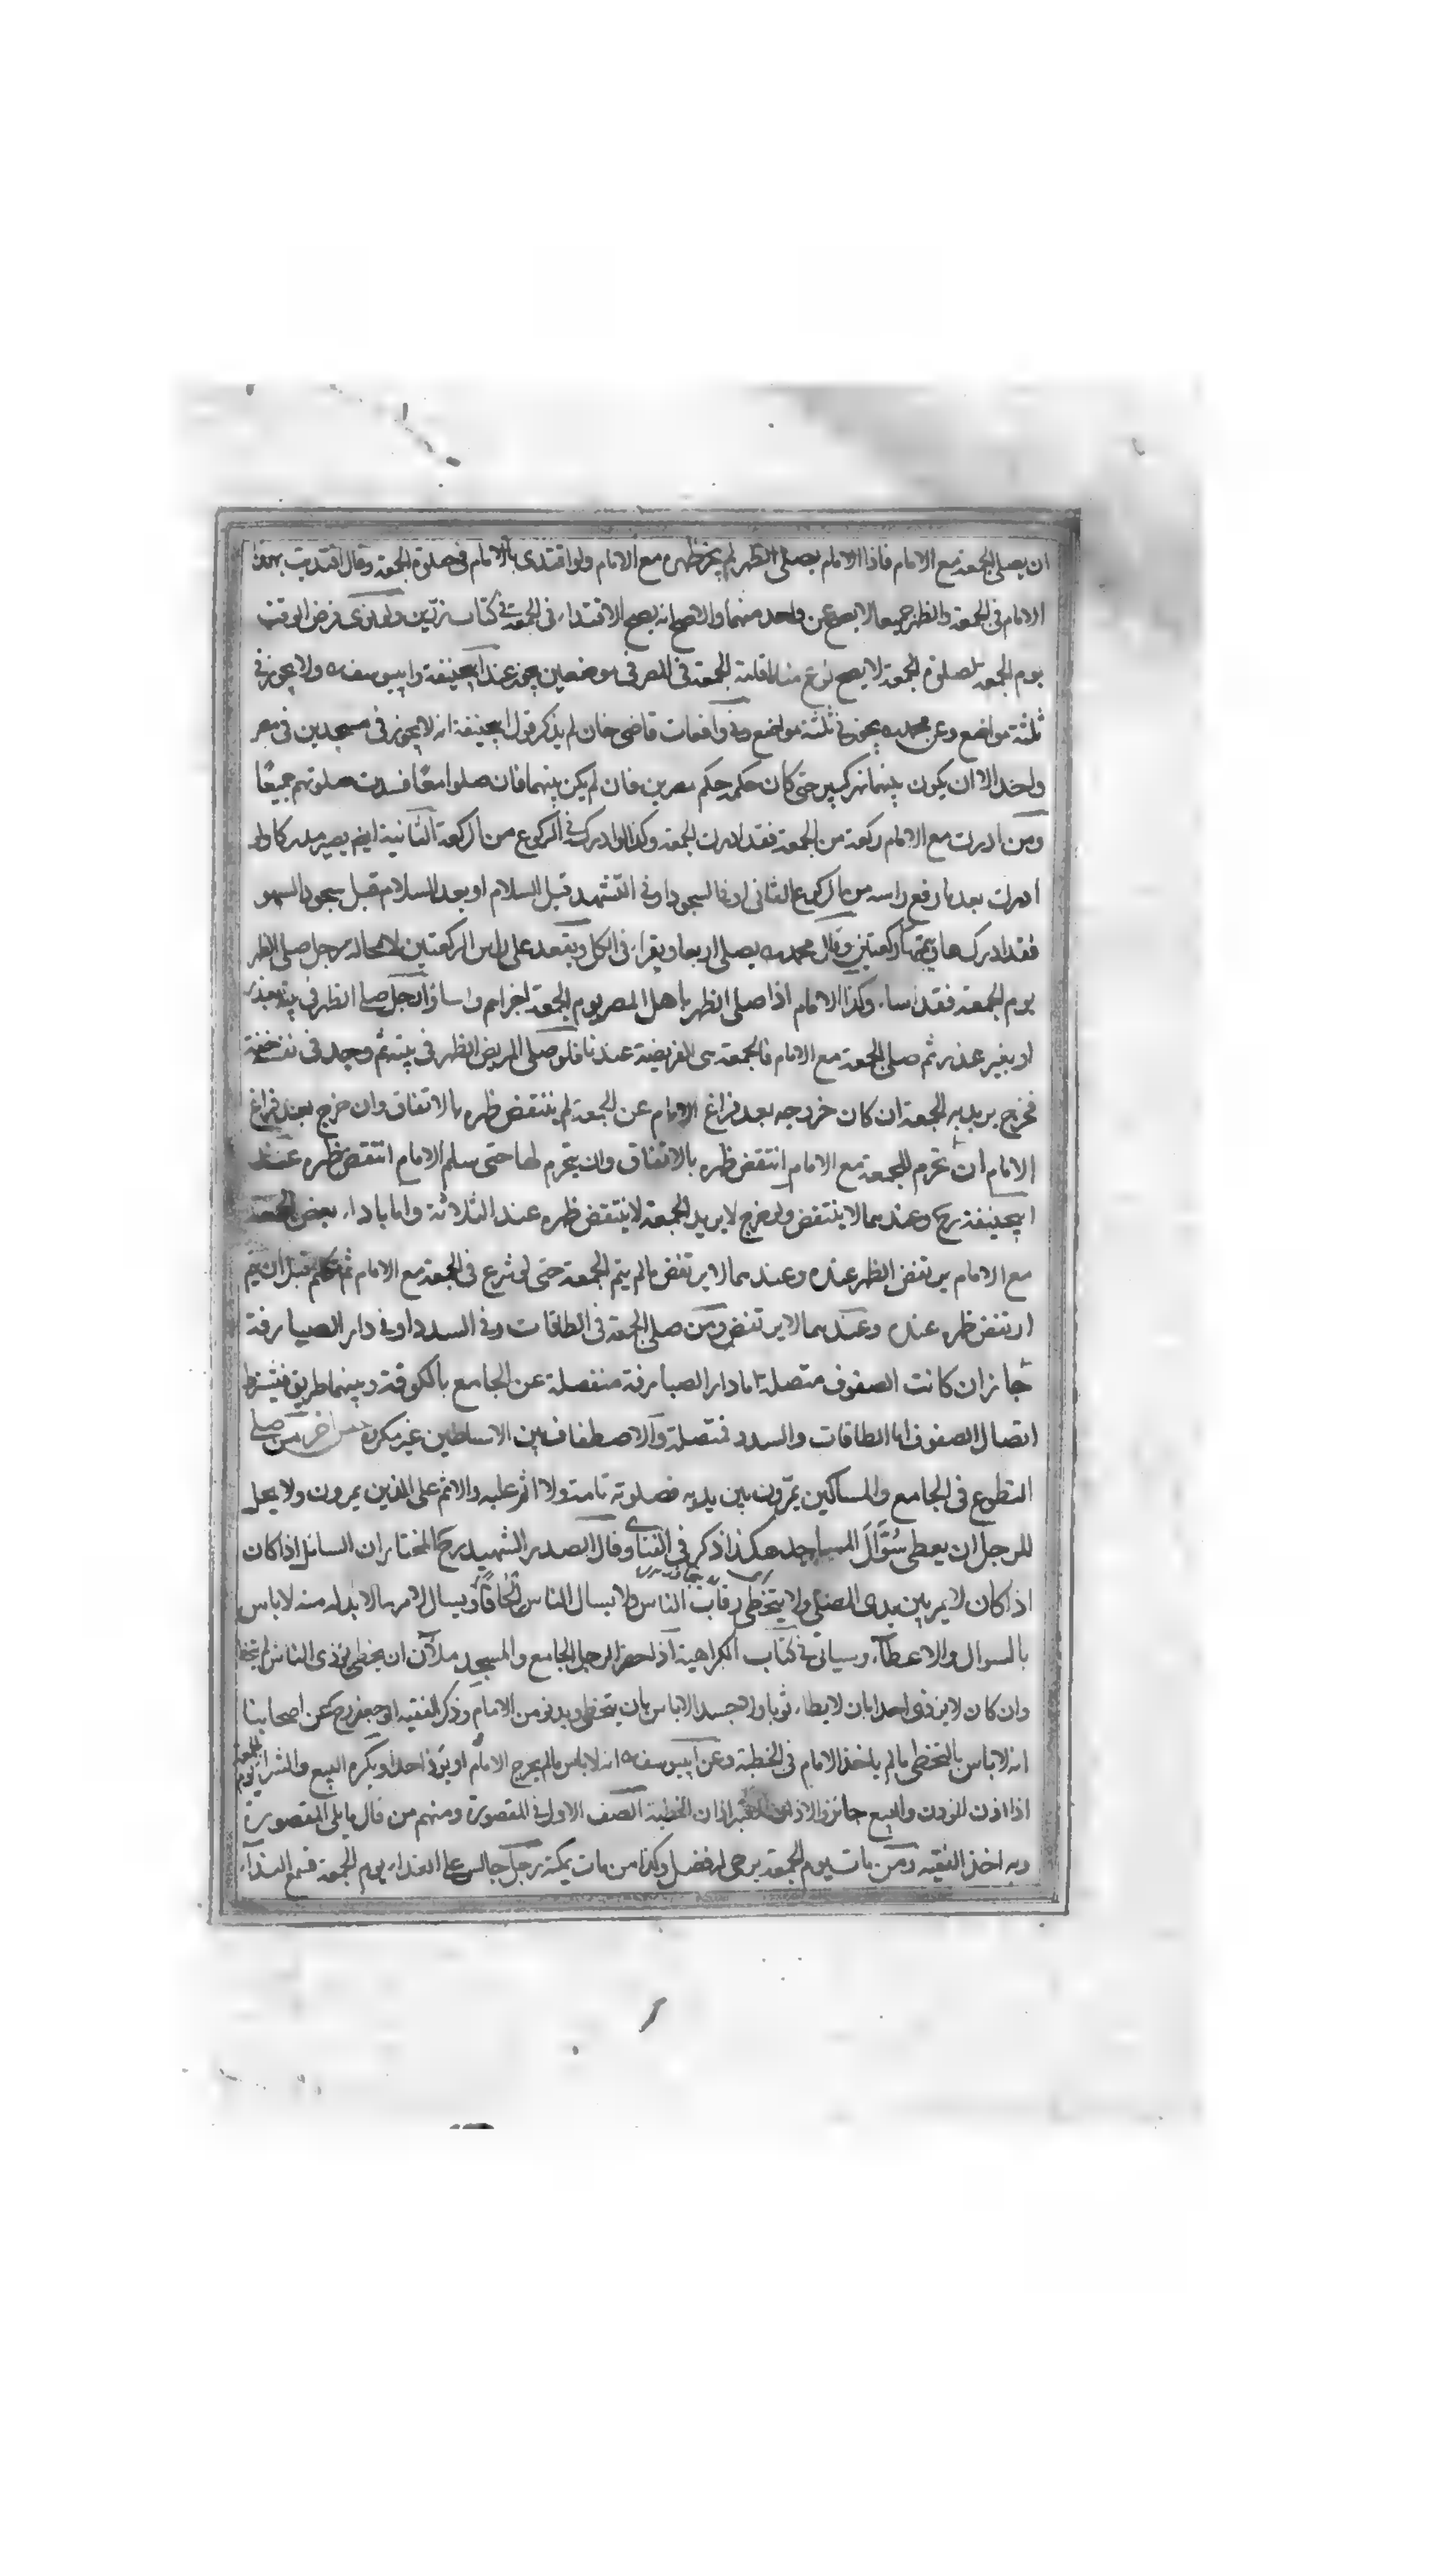 ان يصلى الجمعة مع الامام فاذا الامام يصلى الظهر لم يجز ظهره مع الامام ولو اقتدى بالامام في صلوة الجمعة وقال اقتديت بهذا
الامام فى الجمعة والظهر جميعا لا يصح عن واحد منهما والاصح انه يصح الاقتداء فى الجمعة فى كتاب رزين ولو نوى فرض الوقت
يوم الجمعة لصلوة الجمعة لا يصح نوع منه اقامة الجمعة فى المصر فى موضعين يجوز عند ابيحنيفة وابييوسف ره ولا يجوز فى
ثلثة مواضع وعن محمد ره يجوز فى ثلثة مواضع وفى واقعات قاضى خان لم يذكر قول ابيحنيفة انه لا يجوز فى مسجدين فى مصر
واحد الا ان يكون بينهما نهر كبير حتى كان حكمه حكم مصرين فان لم يكن بينهما فان صلوا معًا فسدت صلوتهم جميعًا
ومن ادرك مع الامام ركعة من الجمعة فقد ادرك الجمعة وكذا لو ادركه فى الركوع من الركعة الثانية ايضا يصير مدركا ولو
ادرك بعد ما رفع راسه من الركوع الثانى او فى السجود او فى التشهد قبل السلام او بعد السلام قبل سجود السهو
فقد ادركها ويتمها ركعتين وقال محمد ره يصلى اربعا ويقراء فى الكل ويقعد على راس الركعتين لا محالة رجل صلى الظهر
يوم الجمعة فقد اساء وكذا الامام اذا صلى الظهر باهل المصر يوم الجمعة اجزاهم واساؤا رجل صلى الظهر فى بيته بعذر
او بغير عذر ثم صلى الجمعة مع الامام فالجمعة هى الفريضة عندنا فلو صلى المريض الظهر فى بيته ثم وجد فى نفسه خفة
فخرج يريد به الجمعة ان كان خروجه بعد فراغ الامام عن الجمعة لم ينتقض ظهره بالاتفاق وان خرج بعد فراغ
الامام ان تحرم للجمعة مع الامام انتقض ظهره بالاتفاق وان يتحرم لها حتى سلم الامام انتقض ظهره عند
ابيحنيفة رح وعندهما لا ينتقض ولو خرج لا يريد الجمعة لا ينتقض ظهره عند الثلاثة واما باداء بعض الجمعة
مع الامام يرتفض الظهر عنده وعندهما لا يرتفض ما لم يتم الجمعة حتى لو شرع فى الجمعة مع الامام ثم تكلم قبل ان يتم
ارتفض ظهره عنده وعندهما لا يرتفض ومن صلى الجمعة فى الطاقات وفى السدد او فى دار الصيارفة
جاز ان كانت الصفوف متصلة اما دار الصيارفة منفصلة عن الجامع بالكوفة وبينهما طريق فيشترط
اتصال الصفوف اما الطاقات والسدد فمتصلة والاصطفاف بين الاساطين غير مكروه جنس اخر من صلى
التطوع فى الجامع والمساكين يمرّون بين يديه فصلوته تامة ولا اثم عليه والاثم على الذين يمرون ولا يحل
للرجل ان يعطى سُؤَّالَ المساجد هكذا ذكر فى الفتاوى وقال الصدر الشهيد رح المختار ان السائل اذا كان
اذا كان لا يمر بين يدى المصلى ولا يتخطى رقاب الناس ولا يسال الناس الحافًا ويسال لامر مالا بد له منه لا باس
بالسوال والاعطاء وسياتى فى كتاب الكراهية اذا حضر الرجل الجامع والمسجد ملآن ان يخطى يوذى الناس لم يتخط
وان كان لا يوذى احدا بان لا يطاء ثوبا ولا جسدا لا باس بان يتخطى ويدنو من الامام وذكر الفقيه ابو جعفر رح عن اصحابنا
انه لا باس بالتخطى ما لم ياخذ الامام فى الخطبة وعن ابييوسف ره انه لا باس ما لم يخرج الامام او يوذى احدا ويكره البيع والشراء يوم الجمعة
اذا اذن الموذن والبيع جائز والاذان المعتبر اذان الخطبة الصف الاول فى المقصورة ومنهم من قال ما يلى المقصورة
وبه اخذ الفقيه ومن مات يوم الجمعة يرجى له فضل وكذا من مات بمكة رجل جالس على الغداء يوم الجمعة فسمع النداء